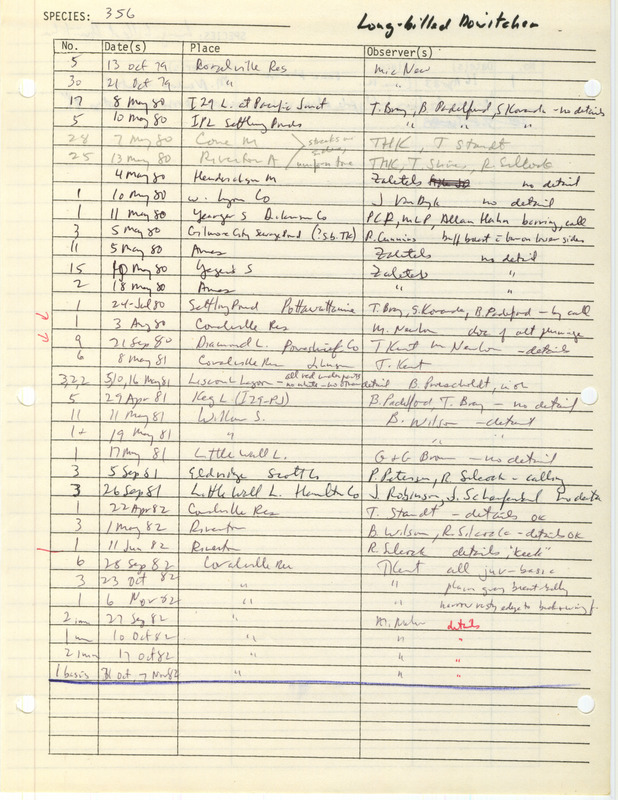 SPECIES: 356 Long-billed Dowitcher
No. Date(s) Place Observer(s)
5 13 Oct 79 Coralville Res
30 21 Oct 79 "
17 8 May 80 I29 L. at Pacific Junct T. Bray, B. Padelford, G. Korando - no details
5 10 May 80 IPL Settling Ponds " " "
28 7 May 80 Cone M THK, T Staudt
25 13 May 80 Riverton A THK, T. , R. Silcock
4 May 80 Henderson M Zaletels no detail
1 10 May 80 W. Lyon Co J no detail
1 11 May 80 S Dickinson Co PCP, MLP, Allan Hahn barring, call
3 5 May 80 Gilmore City Sewage Pond (?SB. TK) R. Cummins buff breast + bar on lower sides
11 5 May 80 Ames Zaletels no detail
15 10 May 80 S Zaletels "
2 18 May 80 Ames " "
1 24-Jul 80 Settling Pond Pottawattamie T. Bray, G. Korando, B. Padelford - by call
1 3 Aug 80 Coralville Res M. Newlon doc of all plumage
9 21 Sep 80 Diamond L. Poweshiek Co T Kent M Newlon - details
6 8 May 81 Coralville Res Johnson T. Kent
3,2,2 5,10,16 May 81 Lagoon - all red underparts - no white - no other detail B.
5 29 Apr 81 Keg L (I29-PJ) B. Padelford T. Bray - no detail
11 11 May 81 S. B. Wilson - detail
1+ 19 May 81 " " "
1 17 May 81 Little Wall L. G+G - no detail
3 5 Sep 81 Eldridge Scott Co P. Petersen, R. Silcock - calling
3 26 Sep 81 Little Wall L. Hamilton Co J. Robinson, J. no details
1 22 Apr 82 Coralville Res T. Staudt - details OK
3 1 May 82 Riverton B. Wilson, R. Silcock - details OK
1 11 Jun 82 Riverton R. Silcock details "keek"
6 28 Sep 82 Coralville Res TKent all juv-basic
3 23 Oct 82 " " plain gray breast-belly
1 6 Nov 82 " " narrow rusty edge to
2 imm 27 Sep 82 M. Newlon details
1 imm 10 Oct 82 " " "
2 imm 17 Oct 82 " " "
1 basic 31 Oct, 7 Nov 82 " " "